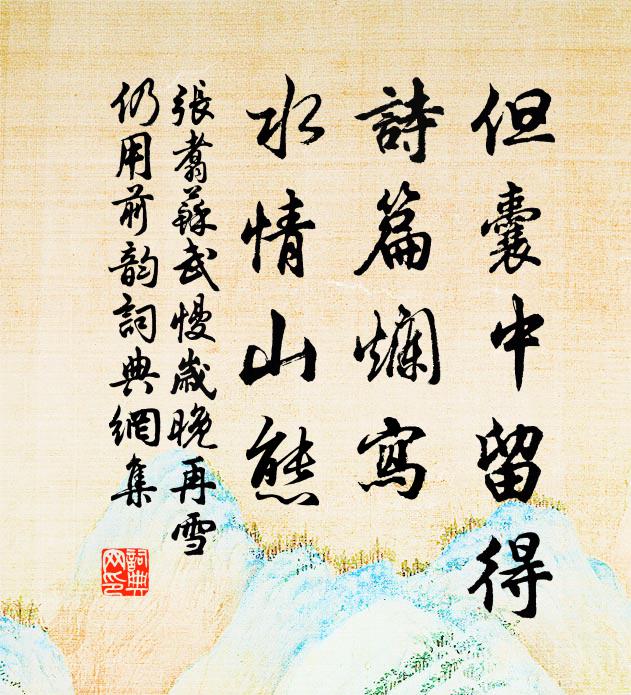 但囊中留得
詩篇爛寫
水情山態
張翥蘇武慢歲晚再雪
仍用前韵詞典網集
詞典網印